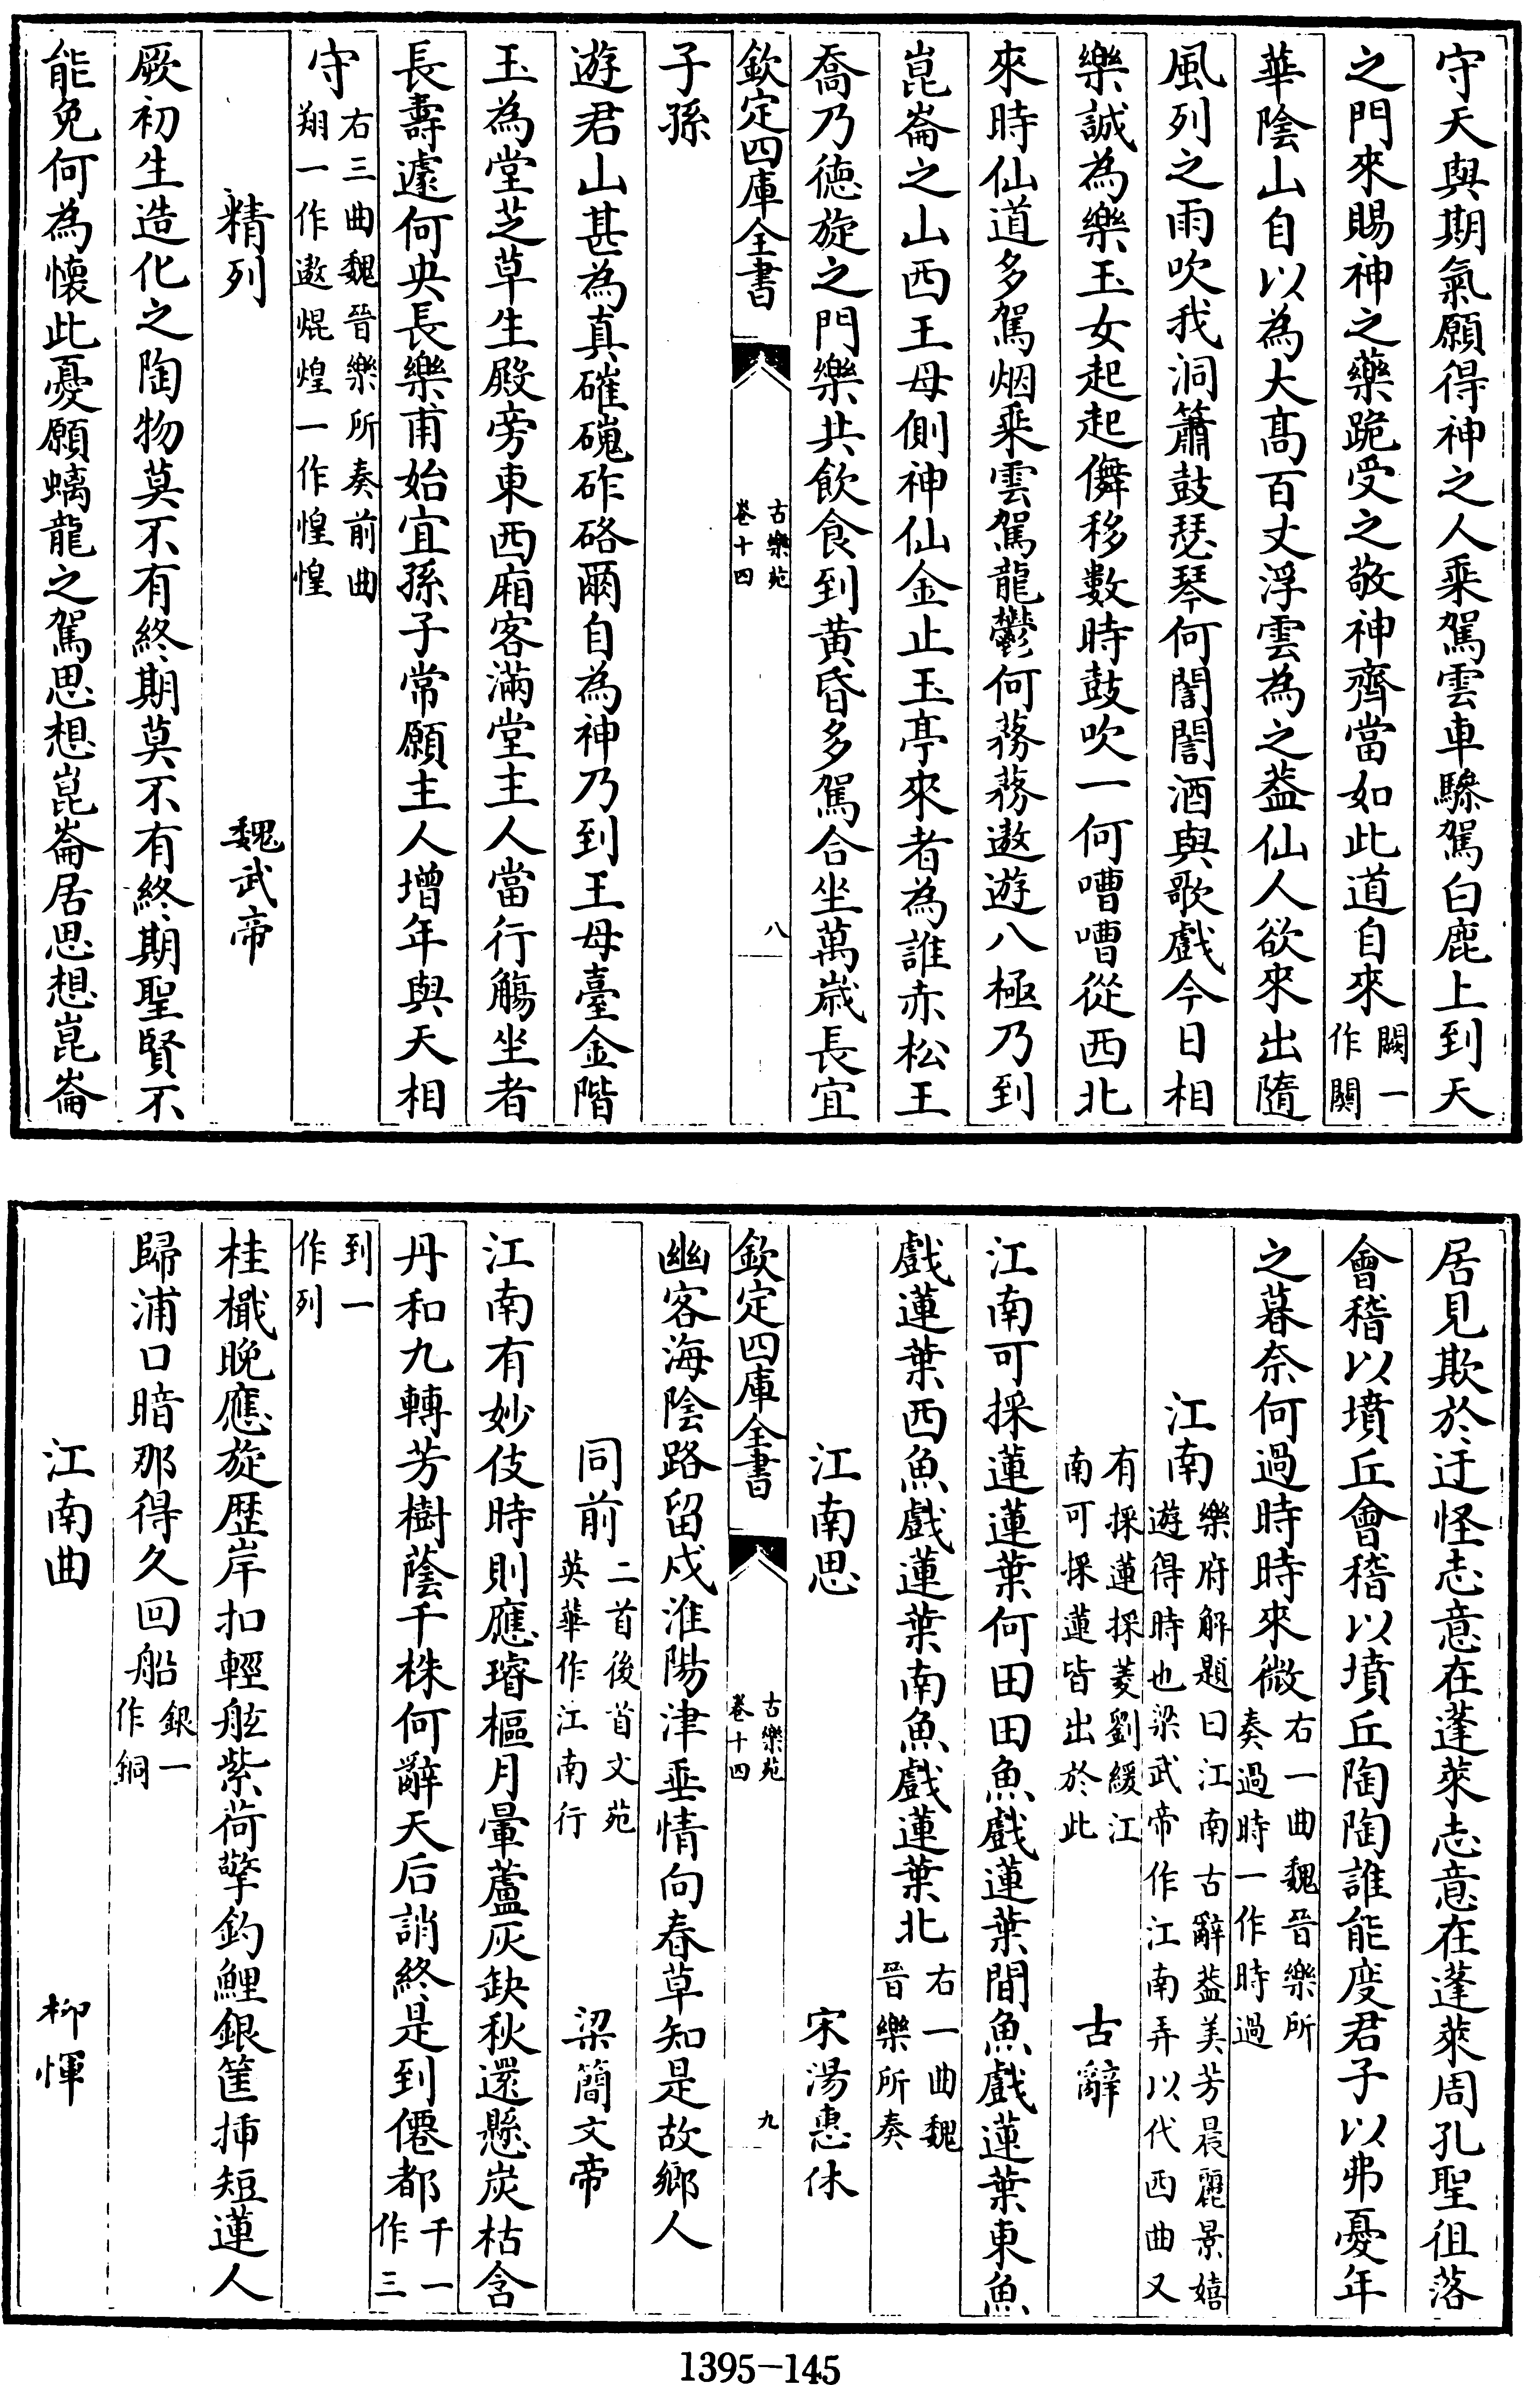 守天與期氣願得神之人乘駕雲車驂駕白鹿上到天
之門來賜神之藥跪受之敬神齊當如此道自來闕一作關
華陰山自以為大高百丈浮雲為之葢仙人欲來出隨
風列之雨吹我洞簫鼓瑟琴何誾誾酒與歌戲今日相
樂誠為樂玉女起起儛移數時鼓吹一何嘈嘈從西北
來時仙道多駕烟乘雲駕龍鬱何蓩蓩遨遊八極乃到
崑崙之山西王母側神仙金止玉亭來者為誰赤松王
喬乃徳旋之門樂共飲食到黄昏多駕合坐萬歳長宜
欽定四庫全書
古樂苑
卷十四
八
子孫
遊君山甚為真磪磈砟硌爾自為神乃到王母臺金階
玉為堂芝草生殿旁東西廂客滿堂主人當行觴坐者
長壽遽何央長樂甫始宜孫子常願主人增年與天相
守右三曲魏晉樂所奏前曲翔一作遨焜煌一作惶惶
精列
魏武帝
厥初生造化之陶物莫不有終期莫不有終期聖賢不
能免何為懷此憂願螭龍之駕思想崑崙居思想崑崙
居見欺於迂怪志意在蓬萊志意在蓬萊周孔聖徂落
會稽以墳丘會稽以墳丘陶陶誰能度君子以弗憂年
之暮奈何過時時來微右一曲魏晉樂所奏過時一作時過
江南樂府解題曰江南古辭葢美芳晨麗景嬉遊得時也梁武帝作江南弄以代西曲又
有採蓮採菱劉緩江南可採蓮皆出於此
古辭
江南可採蓮蓮葉何田田魚戲蓮葉間魚戲蓮葉東魚
戲蓮葉西魚戲蓮葉南魚戲蓮葉北右一曲魏晉樂所奏
江南思
宋湯惠休
欽定四庫全書
古樂苑
卷十四
九
幽客海陰路留戍淮陽津垂情向春草知是故鄉人
同前二首後首文苑英華作江南行
梁簡文帝
江南有妙伎時則應璿樞月暈蘆灰缺秋還懸炭枯含
丹和九轉芳樹蔭千株何辭天后誚終是到僊都千一作三
到一作列
桂檝晩應旋歴岸扣輕舷紫荷擎釣鯉銀筐插短蓮人
歸浦口暗那得久回船銀一作銅
江南曲
柳惲
1395-145